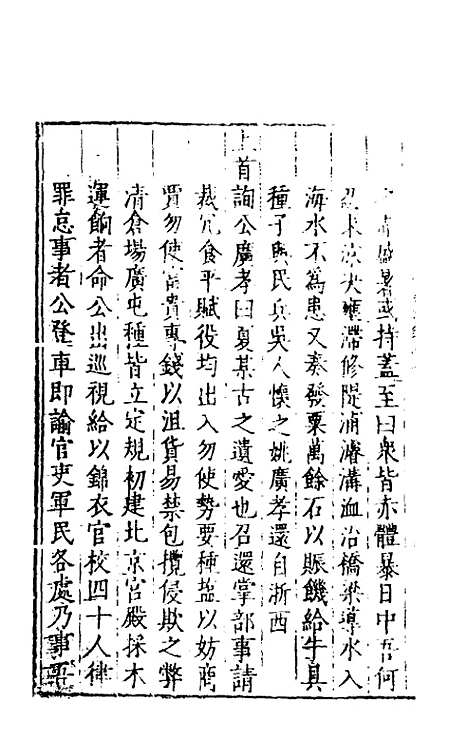 盛暑或持蓋至曰衆皆赤體暴日中吾何
忍求涼決壅滯修隄浦濬溝洫治橋梁導水入
海水不為患又奏發粟萬餘石以賑饑給牛具
種子與民兵吳人懷之姚廣孝還自浙西
上首詢公廣孝曰夏某古之遺愛也召還掌部事請
裁冗食平賦役均出入勿使勢要種鹽以妨商
賈勿使富貴專錢以沮貨易禁包攬侵欺之弊
清倉場廣屯種皆立定規初建北京宮殿採木
運餉者命公出巡視給以錦衣官校四十人律
罪怠事者公登車即諭官吏軍民各處乃事吾